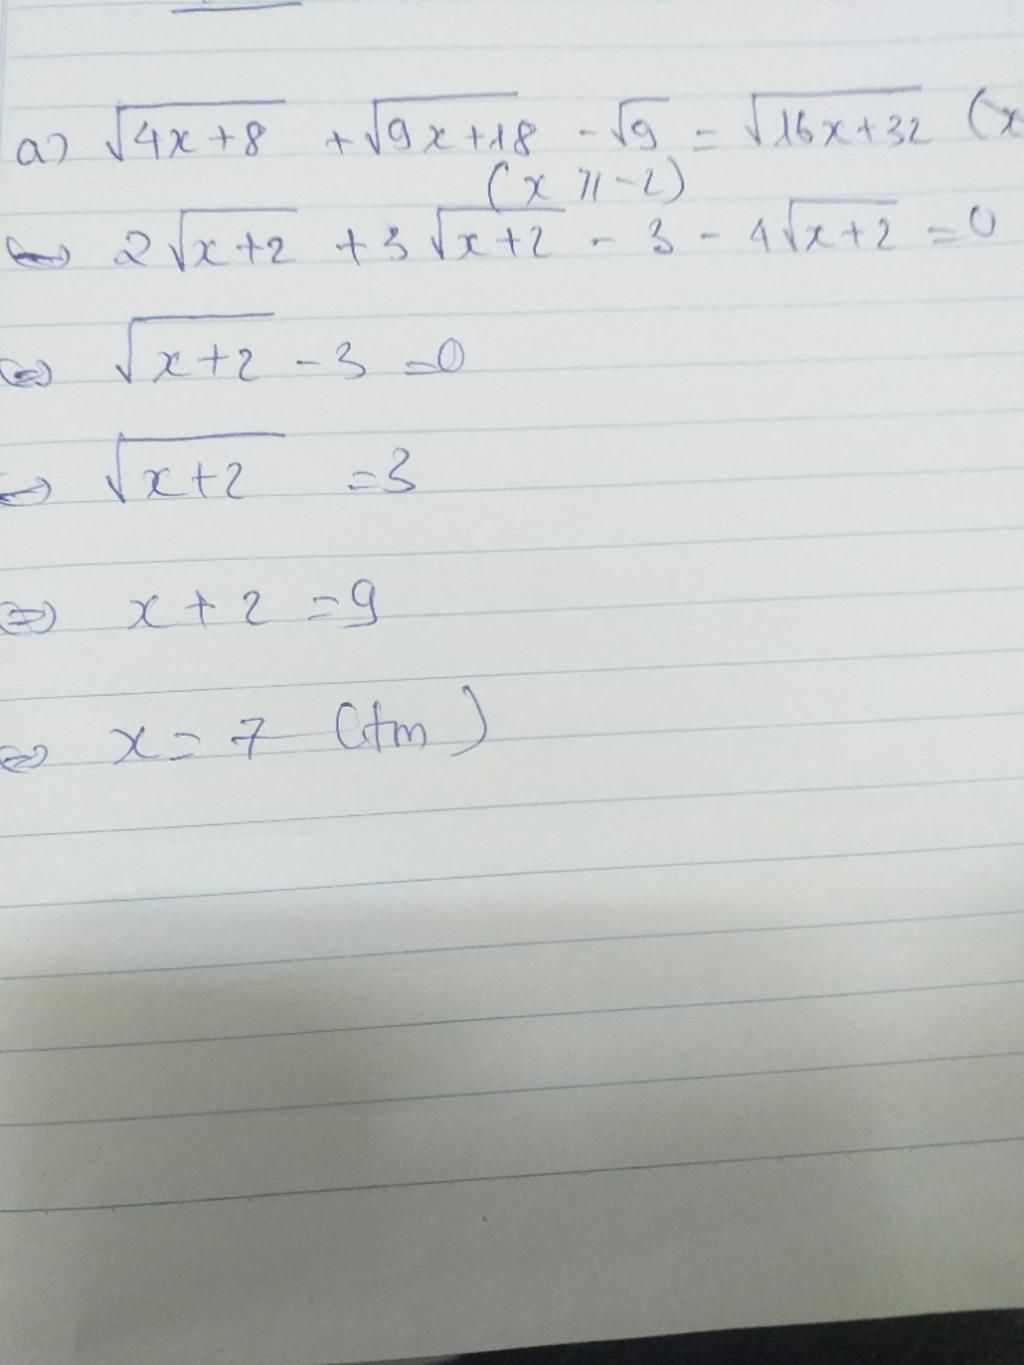 a) √4x+8 + √9x+18 - √9 = √16x+32 (x
(x ≥ -2)
⇔ 2√x+2 + 3√x+2 - 3 - 4√x+2 = 0
⇔ √x+2 - 3 = 0
⇔ √x+2 = 3
⇔ x + 2 = 9
⇔ x = 7 (tm)